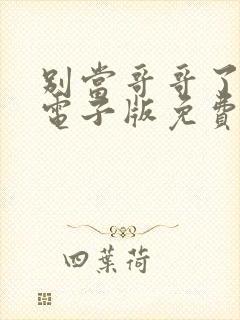 別當哥哥了
電子版免費
四葉荷